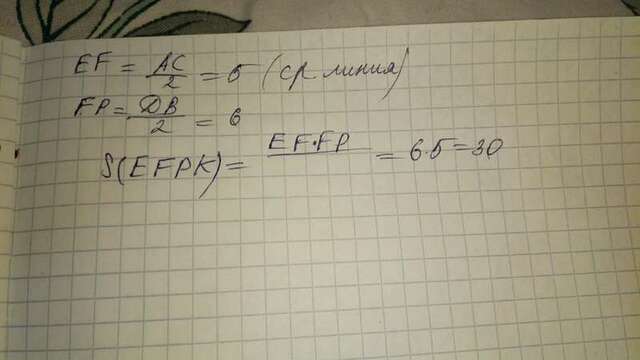 EF = AC/2 = 5 (ср линия)
FP = DB/2 = 6
S(EFPK) = EF·FP = 6·5 = 30